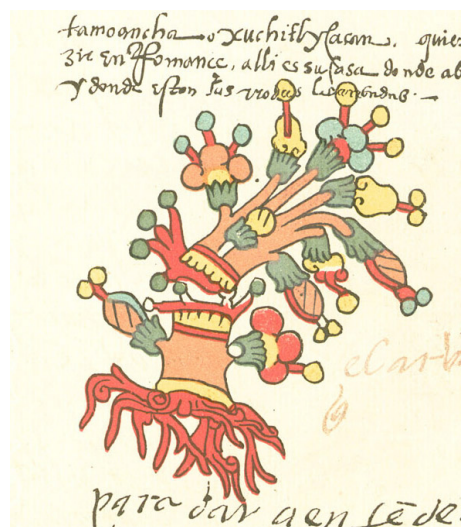 tamoancha o xuchitlycacan. quie
zir en Romance, alli es su casa donde ab
y donde eston sus rrosas
el carb
para dar a en tēde